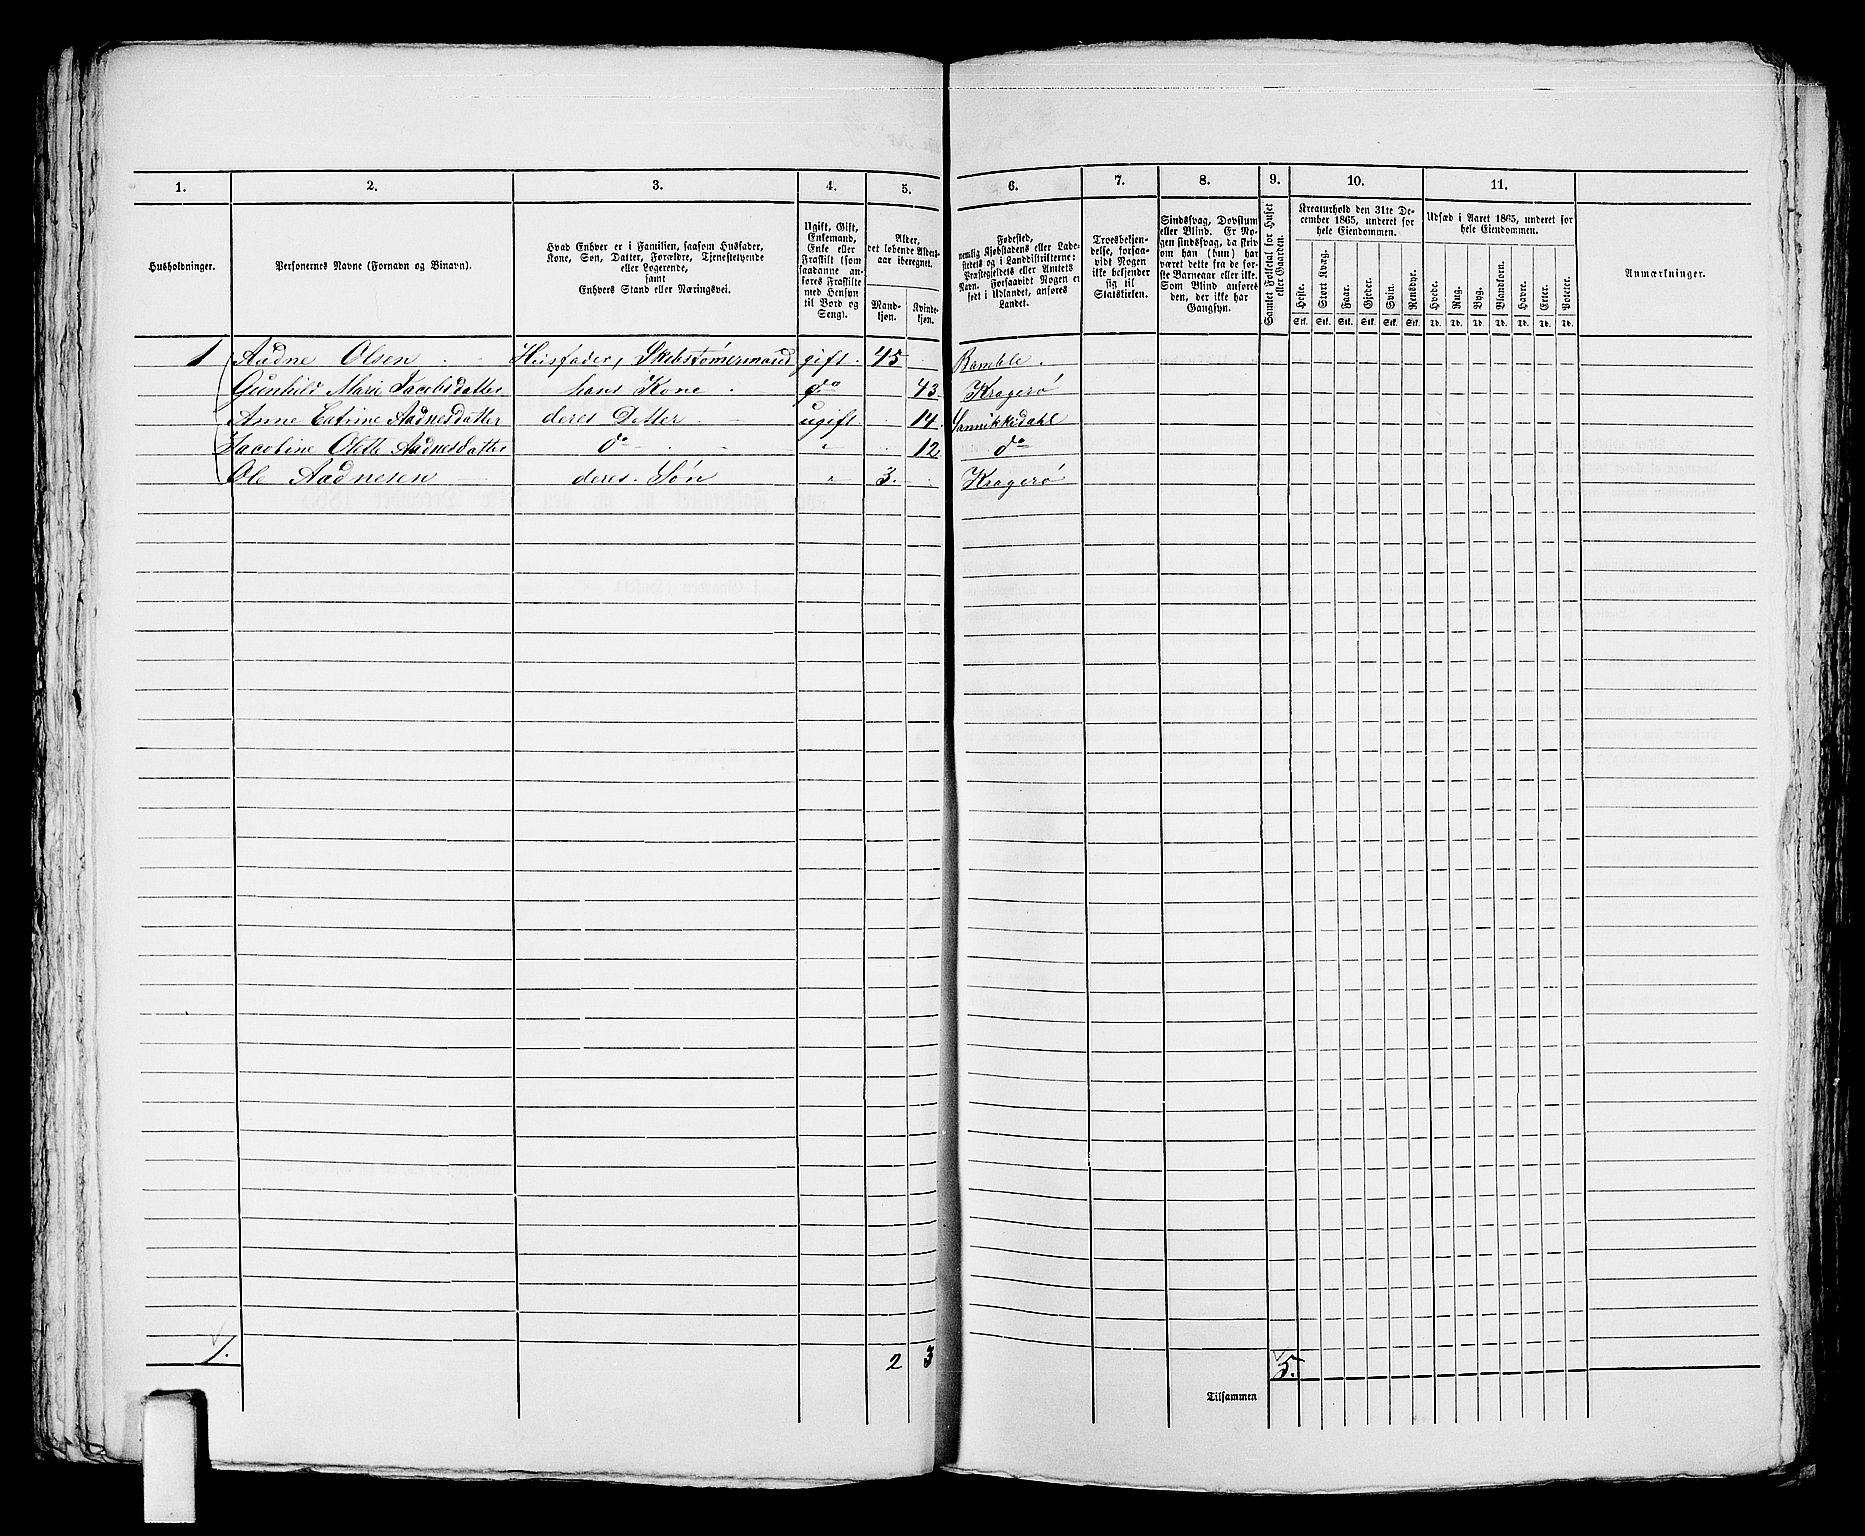 1. 2. 3. 4. 5. 6. 7. 8. 9. 10. 11.
Husholdninger.
Personernes Navne (Fornavn og Binavn).
Hvad Enhver er i Familien, saasom Husfader,
Kone, Søn, Datter, Forældre, Tjenestetyende
eller Logerende,
samt
Enhvers Stand eller Næringsvei.
Ugift, Gift,
Enkemand,
Enke eller
Fraskilt (som
saadanne an-
føres Fraskilte
med Hensyn
til Bord og
Seng).
Alder,
det løbende Alders-
aar iberegnet.
Mand-
kjøn.
Kvinde-
kjøn.
Fødested,
nemlig Kjøbstadens eller Lade-
stedets og i Landdistrikterne:
Præstegjeldets eller Amtets
Navn. Forsaavidt Nogen er
født i Udlandet, anføres
Landet.
Troesbekjen-
delse, forsaa-
vidt Nogen
ikke bekjender
sig til
Statskirken.
Sindssvag, Døvstum
eller Blind. Er No-
gen sindssvag, da skriv
om han (hun) har
været dette fra de før-
ste Barneaar eller ikke.
Som Blind anføres
den, der ikke har
Gangsyn.
Samlet Folketal for Huset
eller Gaarden.
Kreaturhold den 31te De-
cember 1865, underet for
hele Eiendommen.
Heste. Stort Kvæg. Faar. Gjeter. Svin. Rensdyr.
Stk. Stk. Stk. Stk. Stk. Stk.
Udsæd i Aaret 1865, underet for
hele Eiendommen.
Hvede. Rug. Byg. Blandkorn. Havre. Erter. Poteter.
Td. Td. Td. Td. Td. Td. Td.
Anmærkninger.
1 Aadne Olsen Huusfader, Skibstømermand gift 45 Bamble.
Gunhild Marie Jacobsdatter hans Kone do 43 Kragerø
Anne Catrine Aadnesdatter deres Datter ugift 14 Sannikkedahl
Jacobine Olette Aadnesdatter do " 12 do
Ole Aadnesen deres Søn " 3. Kragerø
1. 2 3 5.
Tilsammen